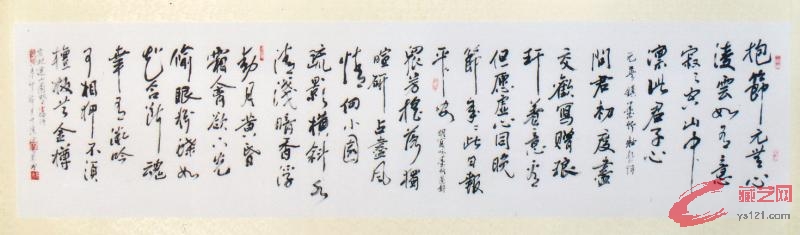 抱節元無心
淩雲如有意
寂寂空山中
凛此君子心
元吳鎮墨竹
問君初度盡
交歡寫贈琅
玕着意看
但願虛心同晚
節年年此日報
平安
衆芳摇落獨
暄妍占盡風
情向小園
疏影橫斜水
清淺暗香浮
動月黄昏
霜禽欲下先
偷眼粉蝶如
知合斷魂
幸有微吟
可相狎不須
檀板共金樽
藏艺网
ys121.com